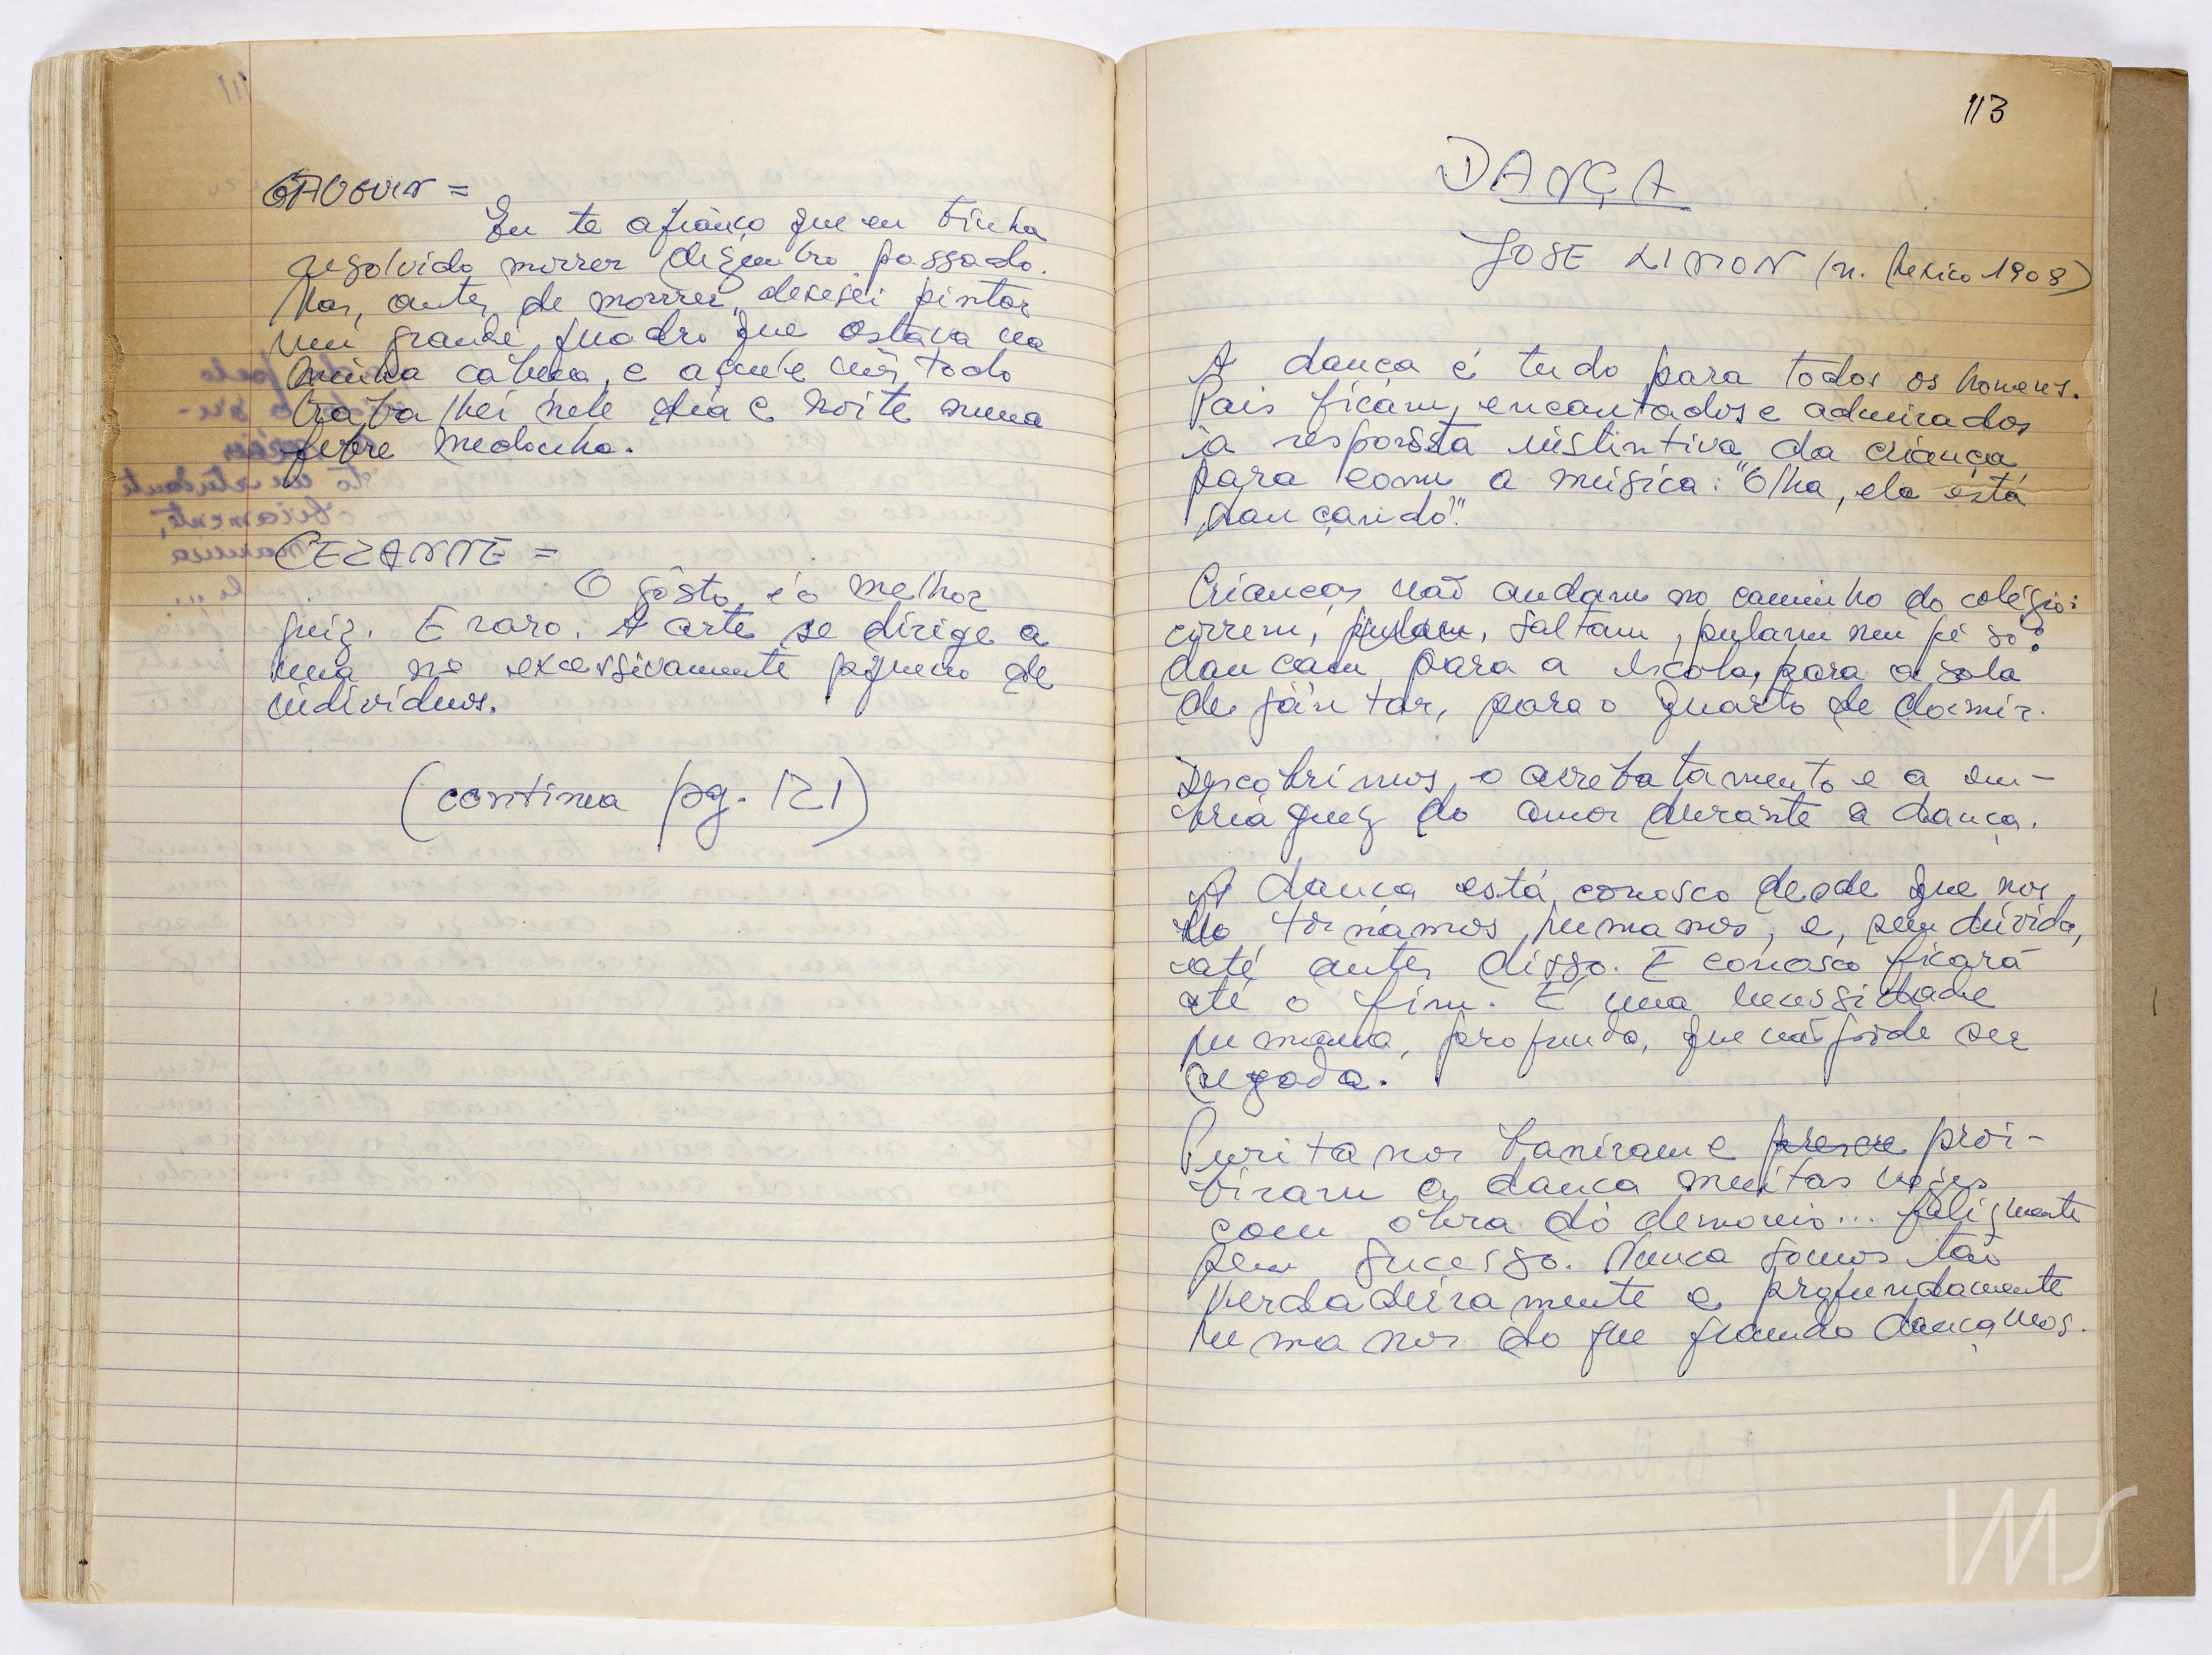 GAUGUIN =
Eu te afianço que eu tinha
resolvido morrer dezembro passado.
Mas, antes de morrer, desejei pintar
um grande quadro que estava na
minha cabeça, e aquele mês todo
trabalhei nele dia e noite numa
febre medonha.
CEZANNE =
O gôsto é o melhor
juiz. E raro. A arte se dirige a
uma no excessivamente pequeno de
individuos.
(continua pg. 121)
113
DANÇA
JOSE LIMON (n. Mexico 1908)
A dança é tudo para todos os homens.
Pais ficam encantados e admirados
à resposta instintiva da criança
para com a música: "Olha, ela está
dançando!"
Crianças não andam no caminho do colégio:
correm, pulam, saltam, pulam num pé só:
dançam para a escola, para a sala
de jantar, para o quarto de dormir.
Descobrimos o arrebatamento e a em-
briaguez do amor durante a dança.
A dança está conosco desde que nos
tornamos humanos, e, sem dúvida,
até antes disso. E conosco ficará
até o fim. É uma necessidade
humana, profunda, que não pode ser
negada.
Puritanos baniram e proi-
biram a dança muitas vezes
com obra do demonio... felizmente
sem sucesso. Nunca somos tão
verdadeiramente e profundamente
humanos do que quando dançamos.
IMS